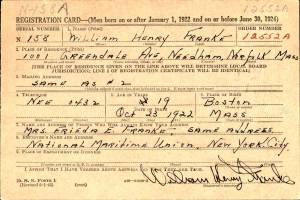 N-158A 12552A
REGISTRATION CARD—(Men born on or after January 1, 1922 and on or before June 30, 1924)
SERIAL NUMBER 1. NAME (Print) ORDER NUMBER
N 158 William Henry Franke 12552A
2. PLACE OF RESIDENCE (Print)
1001 Greendale Ave, Needham, Norfolk Mass
[THE PLACE OF RESIDENCE GIVEN ON THE LINE ABOVE WILL DETERMINE LOCAL BOARD
JURISDICTION; LINE 2 OF REGISTRATION CERTIFICATE WILL BE IDENTICAL]
3. MAILING ADDRESS
Same as #2
4. TELEPHONE 5. AGE IN YEARS 6. PLACE OF BIRTH
Nee 1432 19 Boston
DATE OF BIRTH
Oct 23 1922 Mass
Mrs. Frieda E. Franke, Same Address
National Maritime Union, New York City
I AFFIRM THAT I HAVE VERIFIED ABOVE ANSWERS AND THAT THEY ARE TRUE.
William Henry Franke